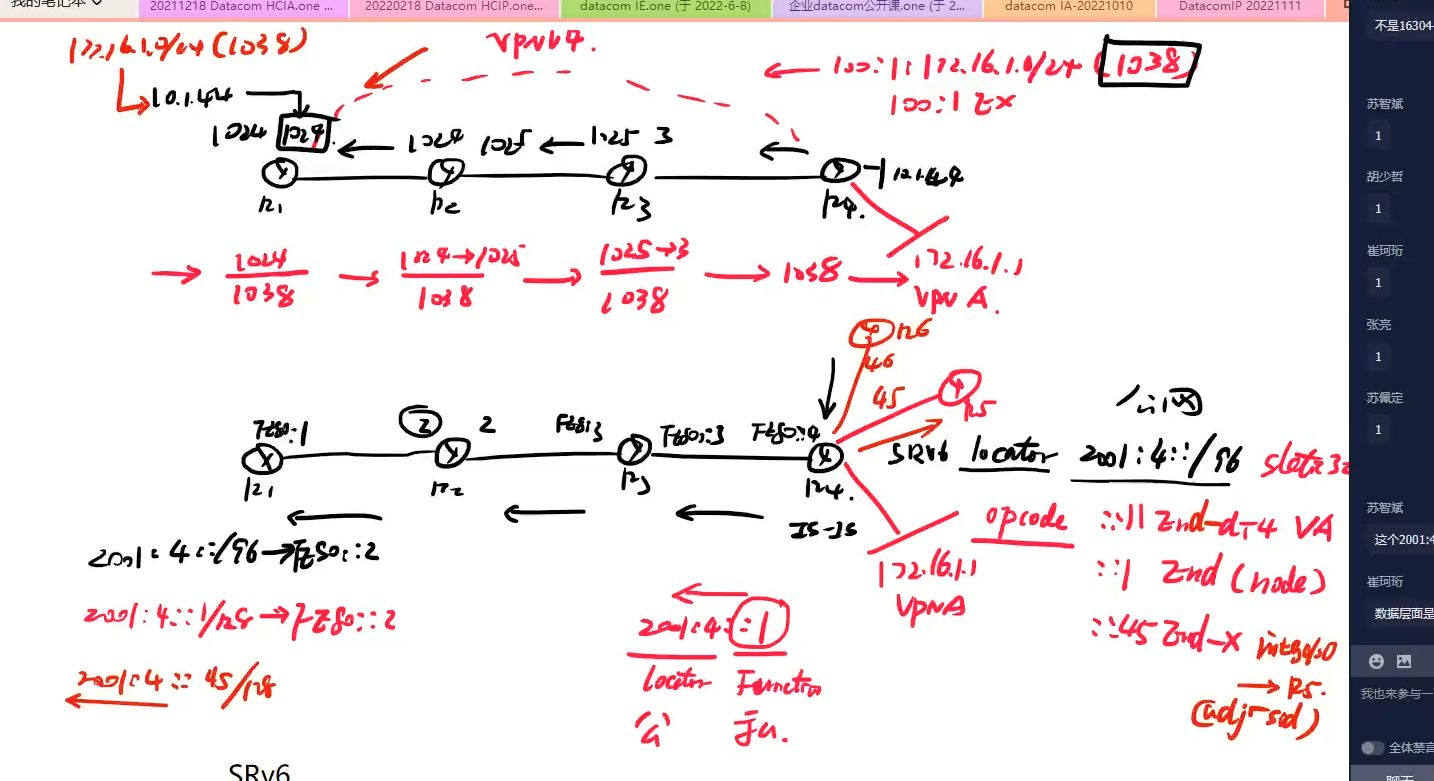 我的笔记本
20211218 Datacom HCIA.one ...
20220218 Datacom HCIP.one...
datacom IE.one (于 2022-6-8)
企业datacom公开课.one (于 2...
datacom IA-20221010
DatacomIP 20221111
172.16.1.0/24 (1038)
vpnv4.
100:1:172.16.1.0/24 (1038)
100:1
10.1.4.4
1024
1024
1024
1025
1025
3
R1
R2
R3
R4.
1024
1038
1024→1025
1038
1025→3
1038
1038
172.16.1.1
VPN A.
R6
46
45
R5
FE80::1
2
2
FE80::3
FE80::4
R1
R2
R3
R4.
IS-IS
公网
SRv6 locator 2001:4::/96
opcode ::11 End-dt4
::1 End (node)
::45 End-X
→ R5.
(adj-sid)
172.16.1.1
VPNA
2001:4::/96→FE80::2
2001:4::1/128→FE80::2
2001:4::45/128
2001:4::1
locator
Function
公
私.
SRv6
不是16304
苏智斌
1
胡少哲
1
崔珂珩
1
张亮
1
苏佩定
1
苏智斌
这个2001:4
崔珂珩
数据层面是
我也来参与一
全体禁言